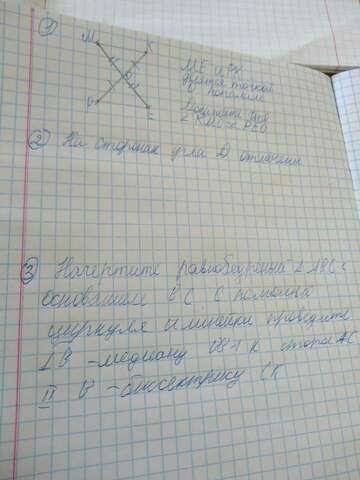 ①
М К
О
Р Е
МЕ и РК
делятся точкой
пополам
Докажите что
∠ КМО = ∠ РЕО
② На сторонах угла D отмечены
③ Начертите равнобедренный △ АВС с
основанием ВС. С помощью
циркуля и линейки проведите
I В - медиану ВВ1 к стороне АС
II В - биссектрису СК